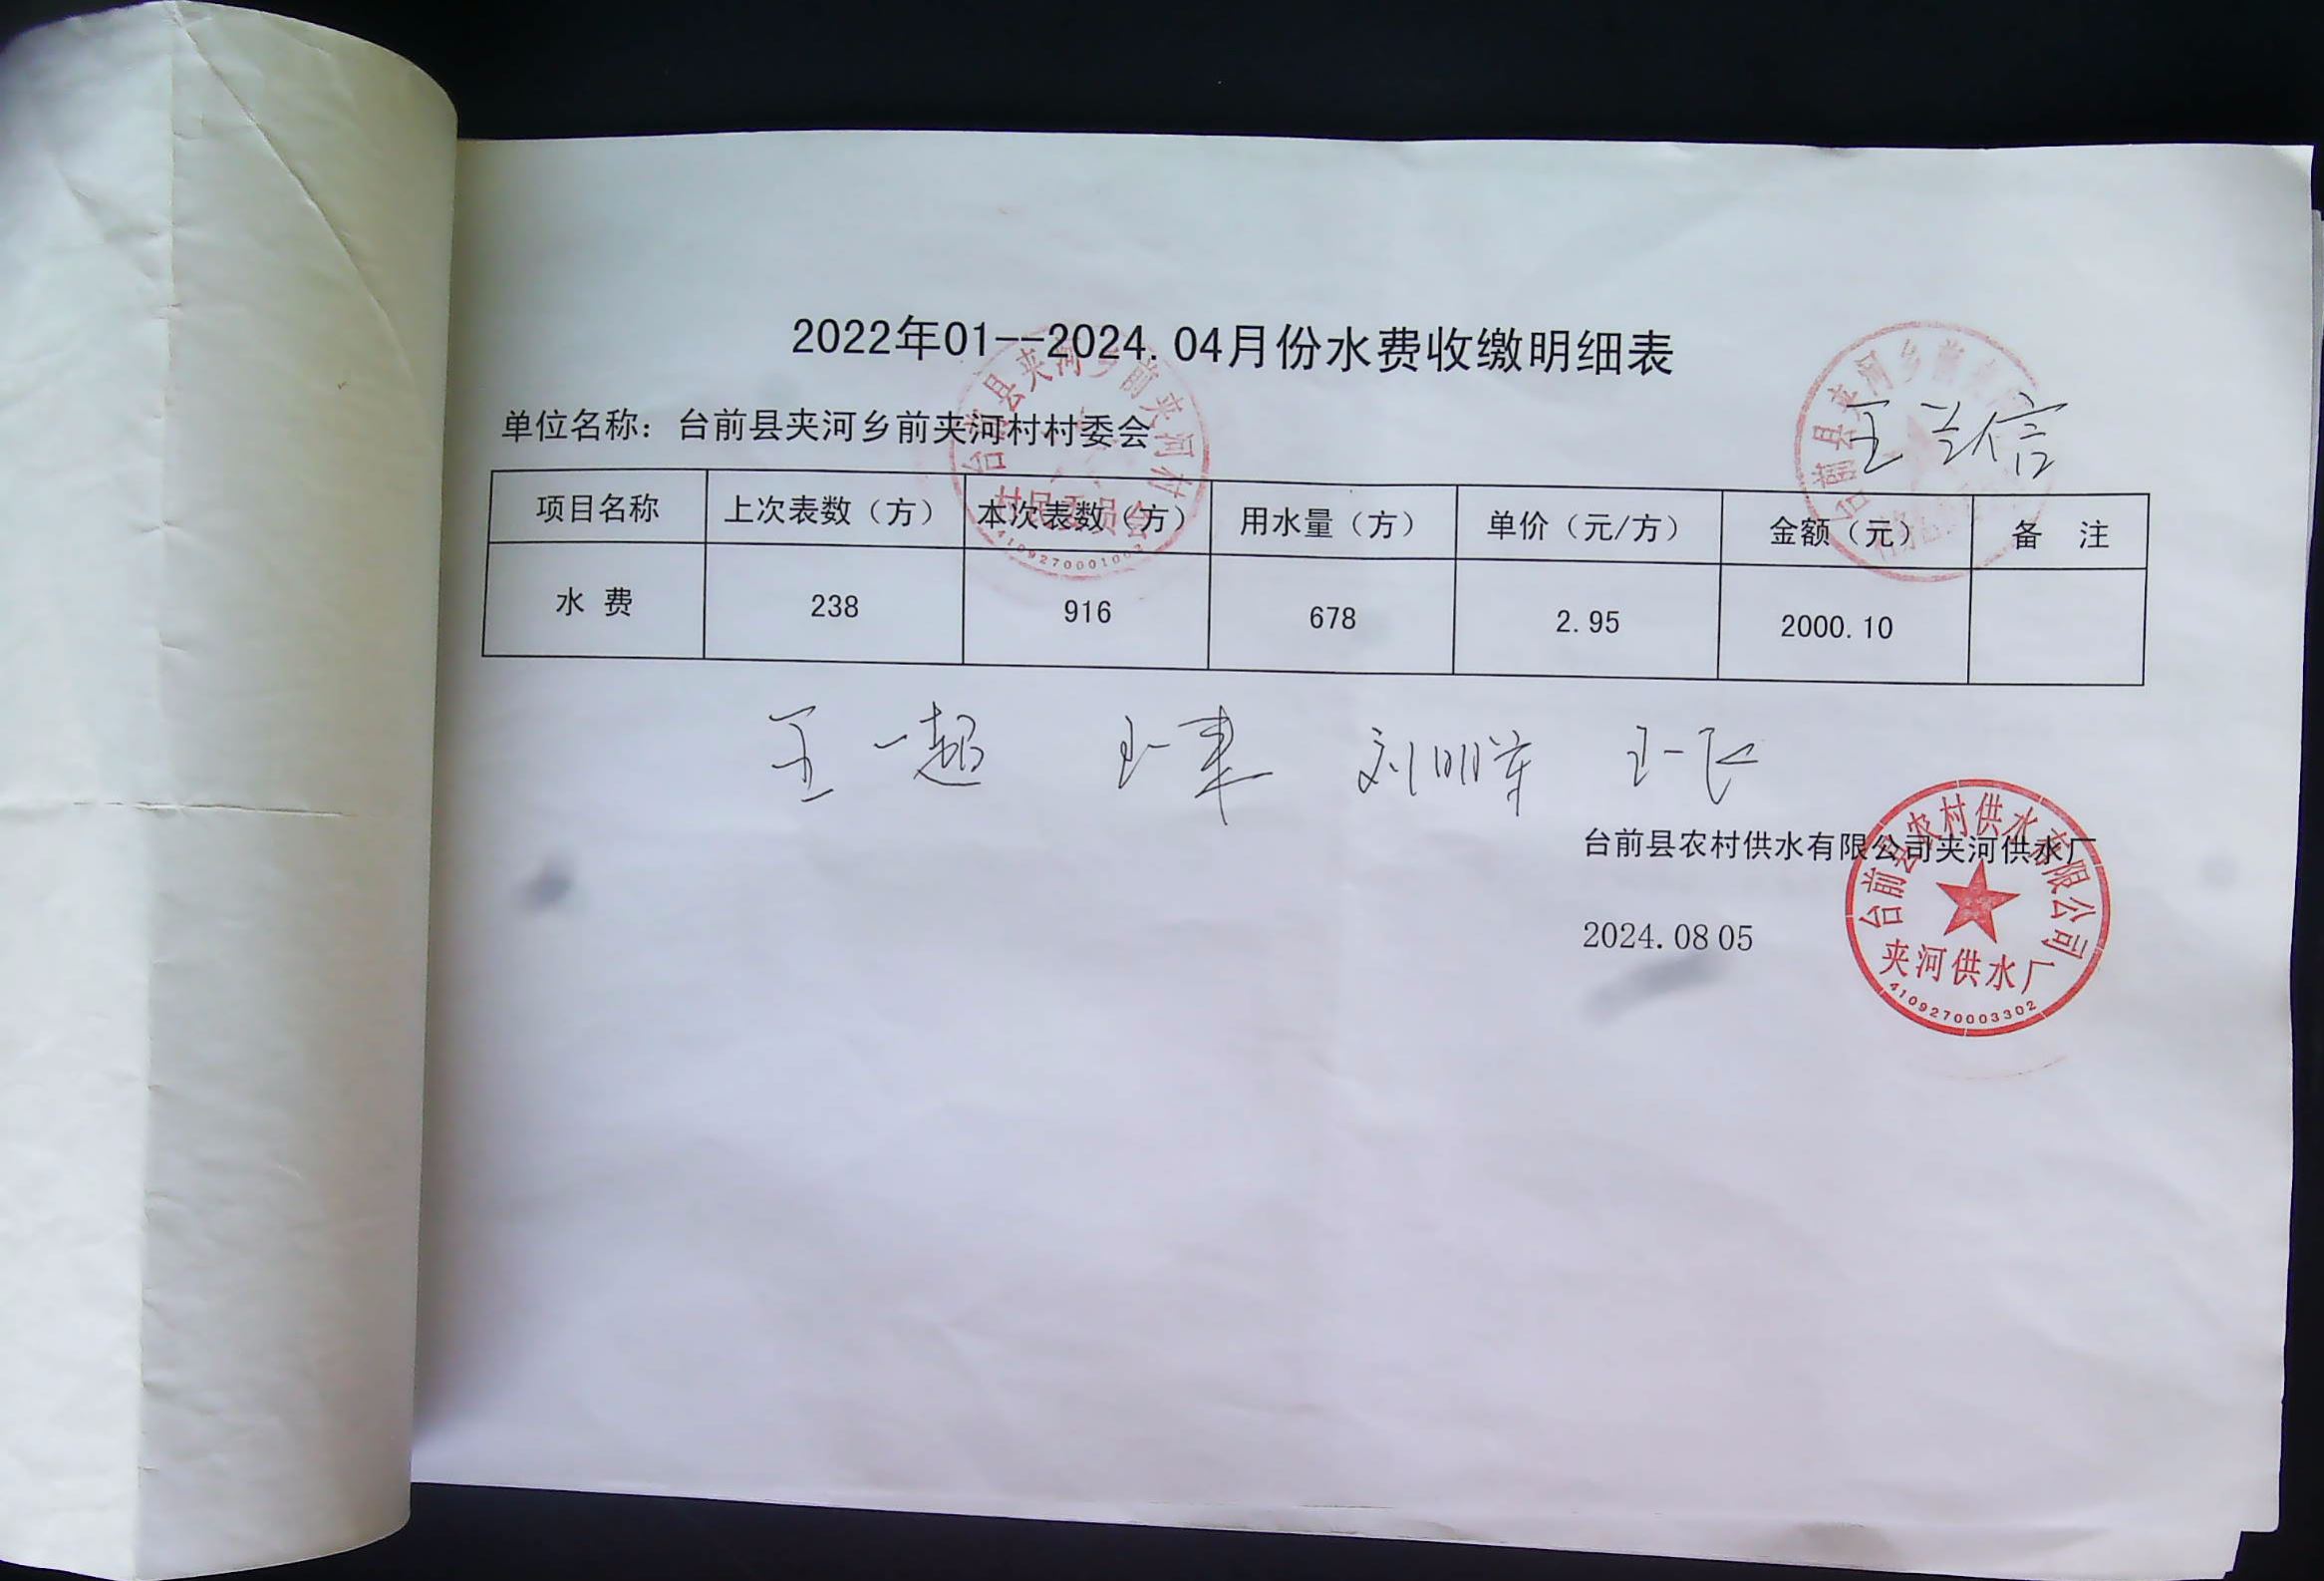 2022年01--2024.04月份水费收缴明细表
单位名称：台前县夹河乡前夹河村村委会
王兰信
项目名称 上次表数（方） 本次表数（方） 用水量（方） 单价（元/方） 金额（元） 备 注
水 费 238 916 678 2.95 2000.10
王一超 刘明军
台前县农村供水有限公司夹河供水厂
2024.08 05
台前县夹河乡前夹河村
村民委员会
台前县农村供水有限公司
夹河供水厂
4109270003302